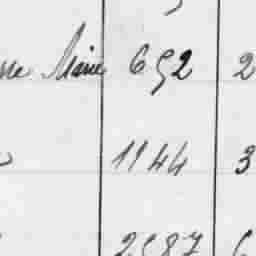 Marie 652 2
1144 3
2587 6